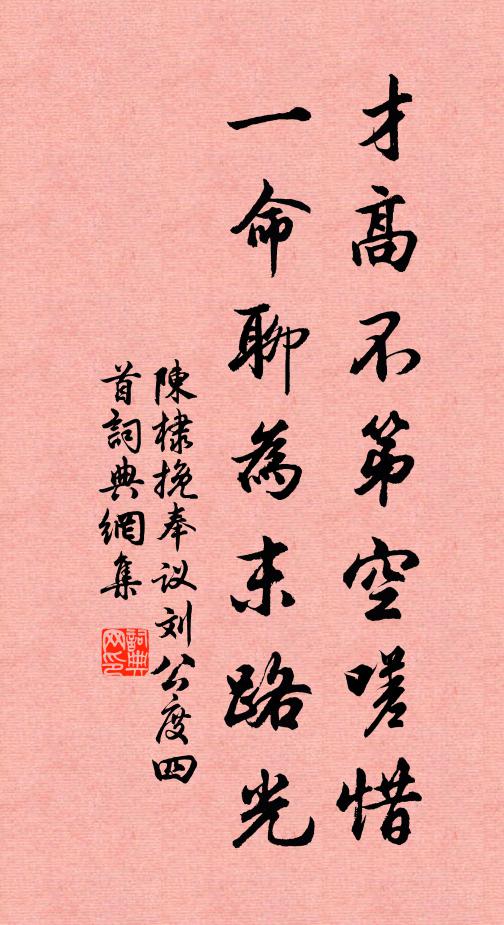 才高不第空嗟惜
一命聊為末路光
陳棣挽奉议刘公度四
首詞典網集
詞典
网印